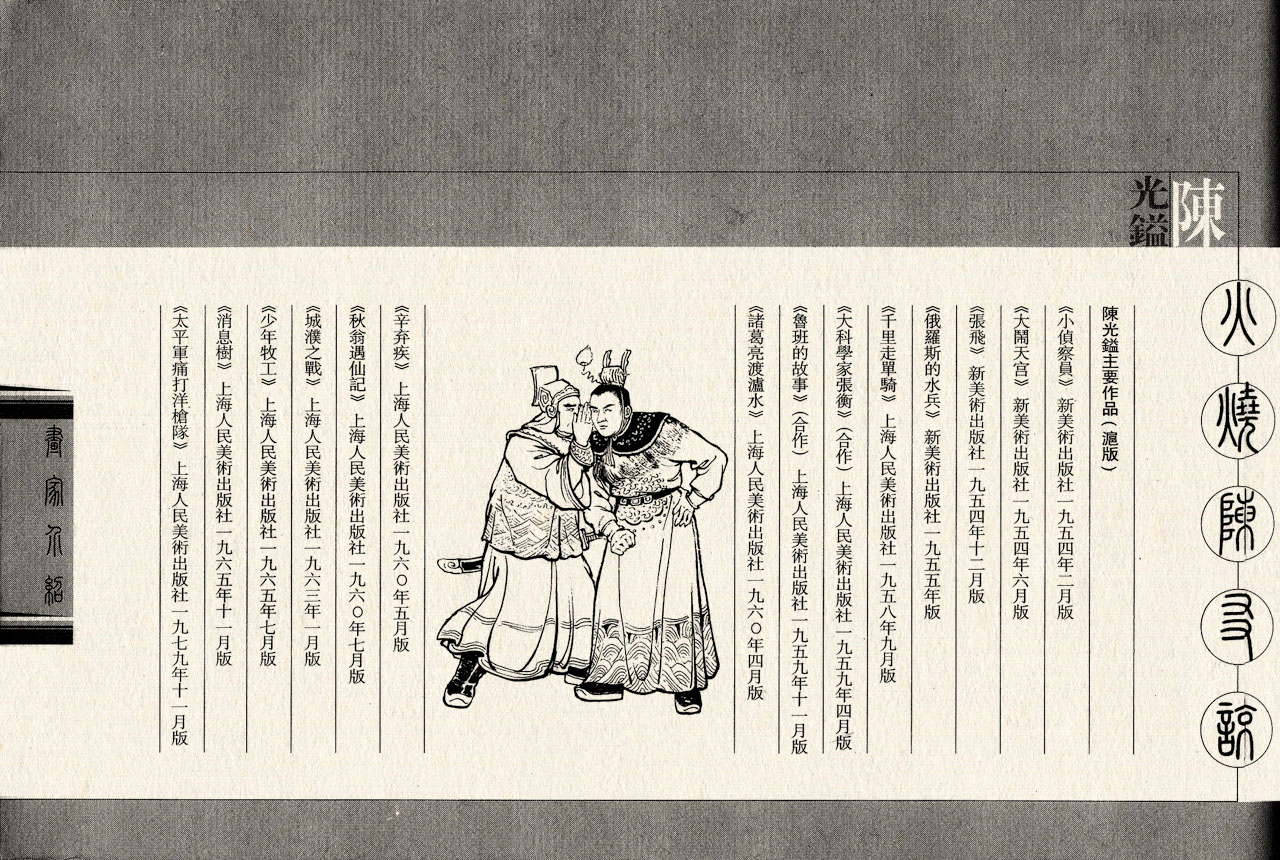 火燒陳友諒
陳光鎰
陳光鎰主要作品（滬版）
《小偵察員》 新美術出版社一九五四年二月版
《大鬧天宮》 新美術出版社一九五四年六月版
《張飛》 新美術出版社一九五四年十二月版
《俄羅斯的水兵》 新美術出版社一九五五年版
《千里走單騎》 上海人民美術出版社一九五八年九月版
《大科學家張衡》（合作） 上海人民美術出版社一九五九年四月版
《魯班的故事》（合作） 上海人民美術出版社一九五九年十一月版
《諸葛亮渡瀘水》 上海人民美術出版社一九六〇年四月版
《辛弃疾》 上海人民美術出版社一九六〇年五月版
《秋翁遇仙記》 上海人民美術出版社一九六〇年七月版
《城濮之戰》 上海人民美術出版社一九六三年一月版
《少年牧工》 上海人民美術出版社一九六五年七月版
《消息樹》 上海人民美術出版社一九六五年十一月版
《太平軍痛打洋槍隊》 上海人民美術出版社一九七九年十一月版
畫家介紹